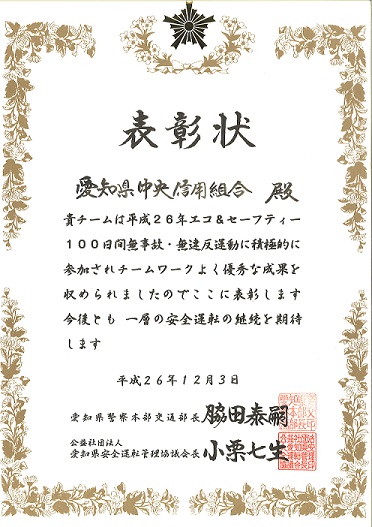 表彰状
愛知県中央信用組合 殿
貴チームは平成26年エコ&セーフティー
100日間無事故・無違反運動に積極的に
参加されチームワークよく優秀な成果を
収められましたのでここに表彰します
今後とも 一層の安全運転の継続を期待
します
平成26年12月3日
愛知県警察本部交通部長 脇田泰嗣
公益社団法人
愛知県安全運転管理協議会長 小栗七生